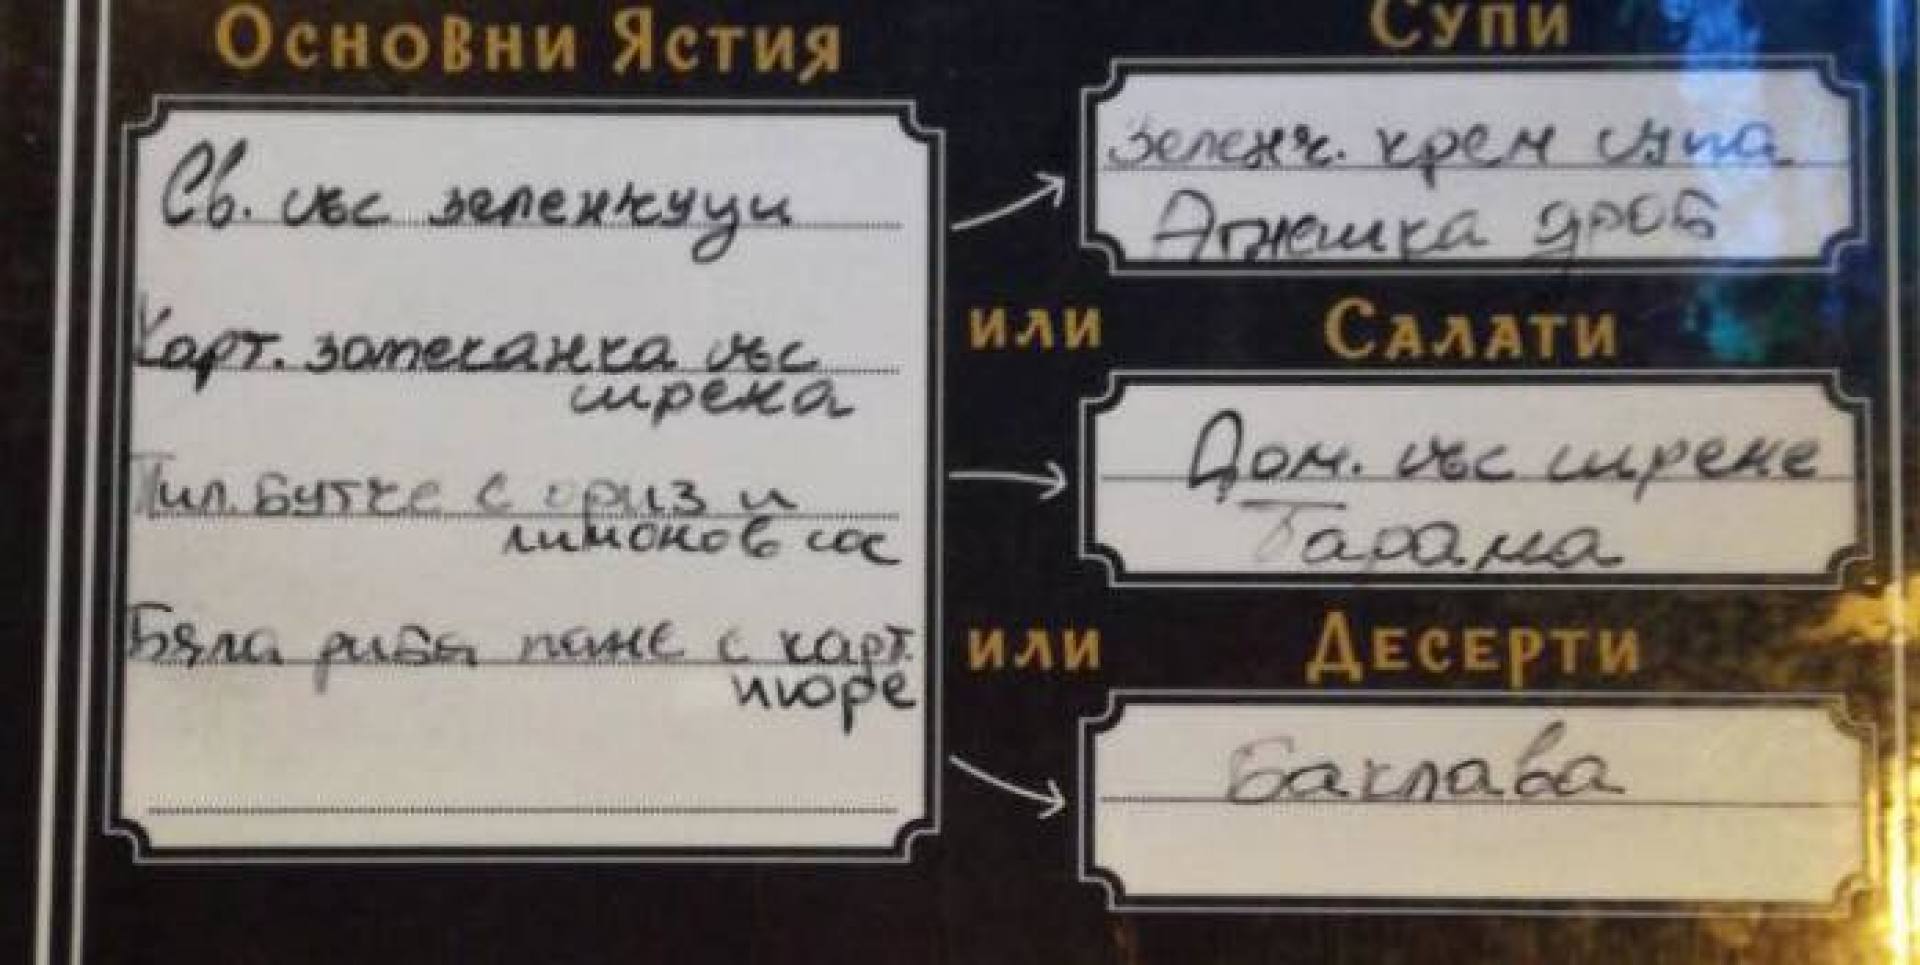 Основни Ястия
Св. със зеленчуци
Карт. запеканка със
сирена
Пил. бутче с ориз и
лимонов сос
Бяла риба пане с карт.
пюре
Супи
зеленч. крем супа
Агнешка дроб
или
Салати
Дом. със сирене
Тарама
или
Десерти
Баклава